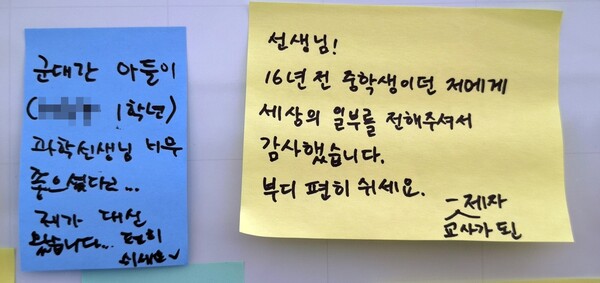 군대간 아들이
( 1학년)
과학선생님 너무
좋으셨다고...
제가 대신
왔습니다... 편히
쉬세요
선생님!
16년 전 중학생이던 저에게
세상의 일부를 전해주셔서
감사했습니다.
부디 편히 쉬세요.
- 제자
교사가 된